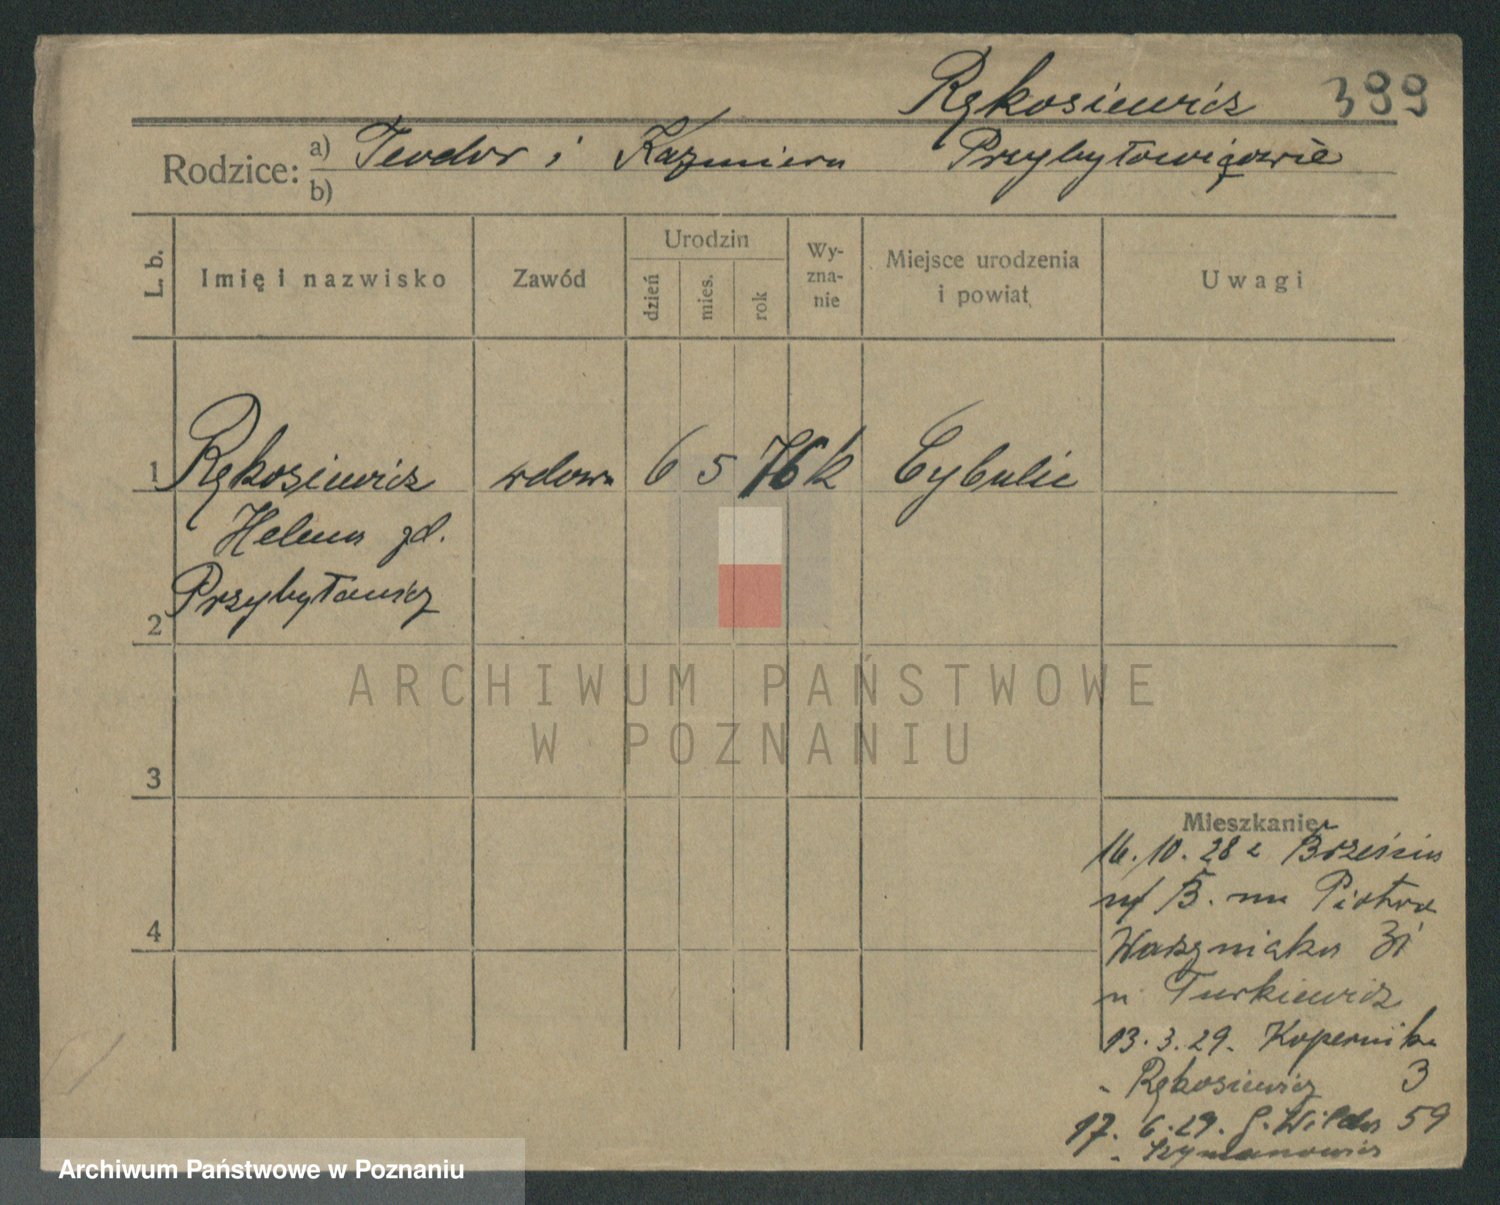 Rękosiewicz 399
Rodzice: a) Teodor i Kazmiera Przybyłowiczowie
b)
L. b.
Imię i nazwisko
Zawód
Urodzin
dzień
mies.
rok
Wy-
zna-
nie
Miejsce urodzenia
i powiat
Uwagi
1 Rękosiewicz wdowa 6 5 76 k Cybulic
Helena zd.
2 Przybyłowicz
3
4
ARCHIWUM PAŃSTWOWE
W POZNANIU
Mieszkanie
16. 10. 28 z Brześcia
n/B. na Piotra
Wawrzyniaka 31
u Turkiewicz
13. 3. 29. Kopernika
" Rękosiewicz 3
17. 6. 29. G. Wilda 59
" Szymanowicz
Archiwum Państwowe w Poznaniu